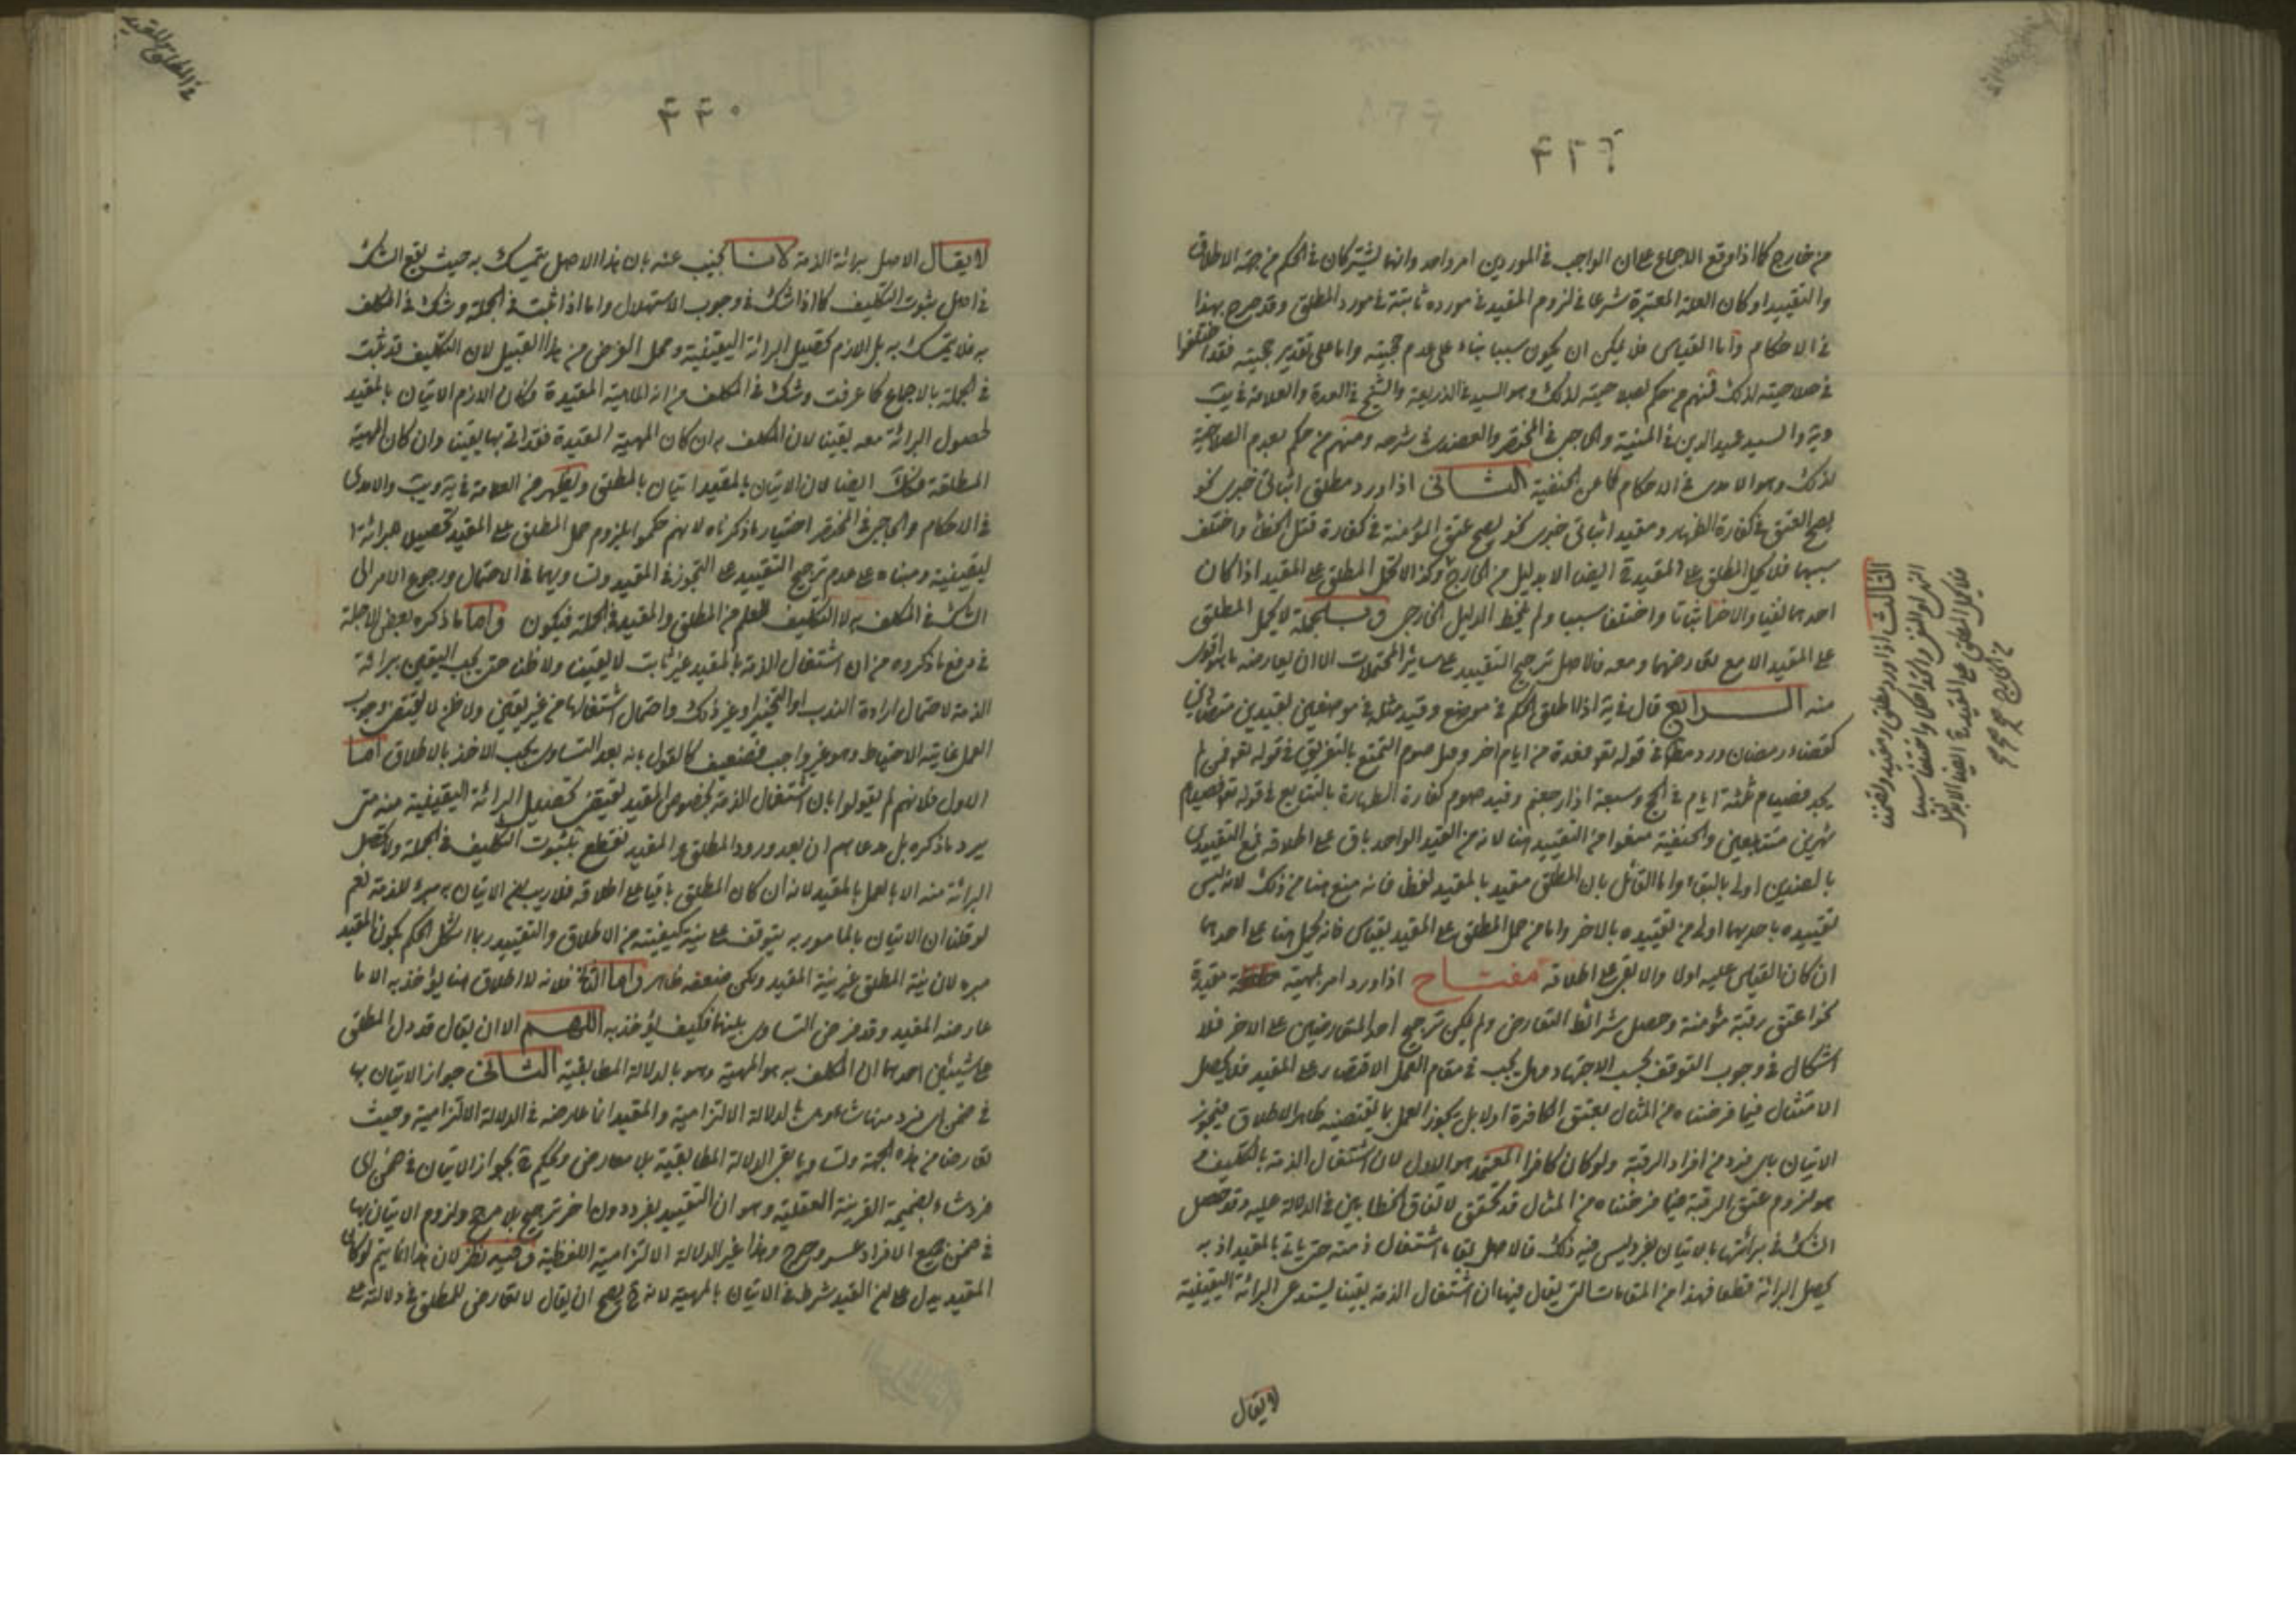 ٤٣٩
من خارج كما اذا وقع الاجماع على ان الواجب في الموردين امر واحد وانهما يشتركان في الحكم من جهة الاطلاق
والتقييد او كان العلة المعتبرة شرعا في لزوم المقيد في مورده ثابتة في مورد المطلق وقد صرح بهذا
في الاحكام واما القياس فلا يمكن ان يكون سببا بناء على عدم حجيته واما على تقدير حجيته فقد اختلفوا
في صلاحيته لذلك فمنهم من حكم بصلاحيته لذلك وهو السيد في الذريعة والشيخ في العدة والعلامة في يب
ويه والسيد عميد الدين في المنية والحاجبي في المختصر والعضدي في شرحه ومنهم من حكم بعدم الصلاحية
لذلك وهو الامدي في الاحكام كما عن الحنفية الثاني اذا ورد مطلق اثباتي خبري نحو
يصح العتق في كفارة الظهار ومقيد اثباتي خبري نحو يصح عتق المؤمنة في كفارة قتل الخطأ واختلف
سببهما فلا يحمل المطلق على المقيد ايضا الا بدليل من الخارج وكذا لا يحمل المطلق على المقيد اذا كان
احدهما نفيا والاخر اثباتا واختلفا سببا ولم يلحظ الدليل الخارجي وبالجملة لا يحمل المطلق
على المقيد الا مع تعارضهما ومعه فالاصل ترجيح التقييد على سائر المحتملات الا ان يعارضه ما هو اقوى
منه الرابع قال في يه اذا اطلق الحكم في موضع وقيد مثله في موضعين بقيدين متضادين
كقضاء رمضان ورد مطلقا في قوله تع فعدة من ايام اخر وصل صوم التمتع بالتفريق في قوله تع فمن لم
يجد فصيام ثلثة ايام في الحج وسبعة اذا رجعتم وقيد صوم كفارة الظهارة بالتتابع في قوله تع فصيام
شهرين متتابعين والحنفية منعوا من التقييد هنا لانه من القيد الواحد باق على اطلاقه فمع التقييد
بالضدين اولى بالبقاء واما القائل بان المطلق مقيد بالمقيد لفظا فانه منع هنا من ذلك لانه ليس
تقييده باحدهما اولى من تقييده بالاخر واما من حمل المطلق على المقيد بقياس فانه يحمل هنا على احدهما
ان كان القياس عليه اولى والا بقي على اطلاقه مفتاح اذا ورد امر بمهية مقيدة
نحو اعتق رقبة مؤمنة وحصل شرائط التعارض ولم يكن ترجيح احد المتعارضين على الاخر فلا
اشكال في وجوب التوقف بحسب الاجتهاد وهل يجب في مقام العمل الاقتصار على المقيد فلا يحصل
الامتثال فيما فرضناه من المثال بعتق الكافرة اولا بل يجوز العمل بما يقتضيه ظاهر الاطلاق فيجوز
الاتيان باي فرد من افراد الرقبة ولو كان كافرا المعتمد هو الاول لان اشتغال الذمة بالتكليف
هو لزوم عتق الرقبة فيما فرضناه من المثال قد تحقق لاتفاق الخطابين في الدلالة عليه وقد حصل
الشك في برائتها بالاتيان بفرد ليس فيه ذلك فالاصل بقاء اشتغال ذمته حتى ياتي بالمقيد اذ به
يحصل البرائة قطعا فهذا من المقامات التي يقال فيها ان اشتغال الذمة يقينا يستدعي البرائة اليقينية
الثالث اذا ورد مطلق ومقيد وتضمنا
النهي او النفي واتحد الحكم واختلفا سببا
فلا يحمل المطلق على المقيد ايضا الا بدليل
من الخارج صح صح
لا يقال
في المطلق والمقيد
٤٤٠
لا يقال الاصل برائة الذمة لانا نجيب عنه بان هذا الاصل يتمسك به حيث يقع الشك
في اصل ثبوت التكليف كما اذا شك في وجوب الاستهلال واما اذا ثبت في الجملة وشك في المكلف
به فلا يتمسك به بل اللازم تحصيل البرائة اليقينية ومحل الفرض من هذا القبيل لان التكليف قد ثبت
في الجملة بالاجماع كما عرفت وشك في المكلف من انه الماهية المقيدة فكان اللازم الاتيان بالمقيد
لحصول البرائة معه يقينا لان المكلف به ان كان المهية المقيدة فقد اتى بها يقينا وان كان المهية
المطلقة فكك ايضا لان الاتيان بالمقيد اتيان بالمطلق ويظهر من العلامة في يه ويب والامدي
في الاحكام والحاجبي في المختصر اختيار ما ذكرناه لانهم حكموا بلزوم حمل المطلق على المقيد تحصيلا للبرائة ا
ليقينية ومبناه على عدم ترجيح التقييد على التجوز في المقيد وتساويهما في الاحتمال ورجوع الامر الى
الشك في المكلف به لا التكليف للعلم من المطلق والمقيد في الجملة فيكون واما ما ذكره بعض الاجلة
في دفع ما ذكروه من ان اشتغال الذمة بالمقيد غير ثابت لا يقينا ولا ظنا حتى يجب اليقين ببرائة
الذمة لاحتمال ارادة الندب او التخيير او غير ذلك واحتمال اشتغالها من غير يقين ولا ظن لا يقتضي وجوب
العمل غايته الاحتياط وهو غير واجب فضعيف كالقول بانه بعد التساوي يجب الاخذ بالاطلاق اما
الاول فلانهم لم يقولوا بان اشتغال الذمة بخصوص المقيد يقتضي تحصيل البرائة اليقينية منه حتى
يرد ما ذكره بل مدعاهم ان بعد ورود المطلق والمقيد نقطع بثبوت التكليف في الجملة ولا تحصل
البرائة منه الا بالعمل بالمقيد لانه ان كان المطلق باقيا على اطلاقه فلا ريب ان الاتيان به مبرئ للذمة نعم
لو قلنا ان الاتيان بالمامور به يتوقف على نية كيفيته من الاطلاق والتقييد ربما اشكل الحكم بكون المقيد
مبره لان نية المطلق غير نية المقيد ولكن ضعفه ظاهر واما الثاني فلانه لا اطلاق هنا يؤخذ به الا ما
عارضه المقيد وقد فرض التساوي بينهما فكيف يؤخذ به اللهم الا ان يقال قد دل المطلق
على شيئين احدهما ان المكلف به هو المهية وهو بالدلالة المطابقية الثاني جواز الاتيان بها
في ضمن اي فرد منها شاء وهي بالدلالة الالتزامية والمقيد انما عارضه في الدلالة الالتزامية وحيث
تعارضا من هذه الجهة وتساويا بقي الدلالة المطابقية بلا معارض ويحكم ح بجواز الاتيان في ضمن اي
فرد شاء بضميمة القرينة العقلية وهو ان التقييد بفرد دون اخر ترجيح بلا مرجح ولزوم الاتيان بها
في ضمن جميع الافراد عسر وحرج وهذا غير الدلالة الالتزامية اللفظية وفيه نظر لان هذا انما يتم لو كان
المقيد يدل على ان القيد شرط في الاتيان بالمهية لانه ح يصح ان يقال لا تعارض للمطلق في دلالته على